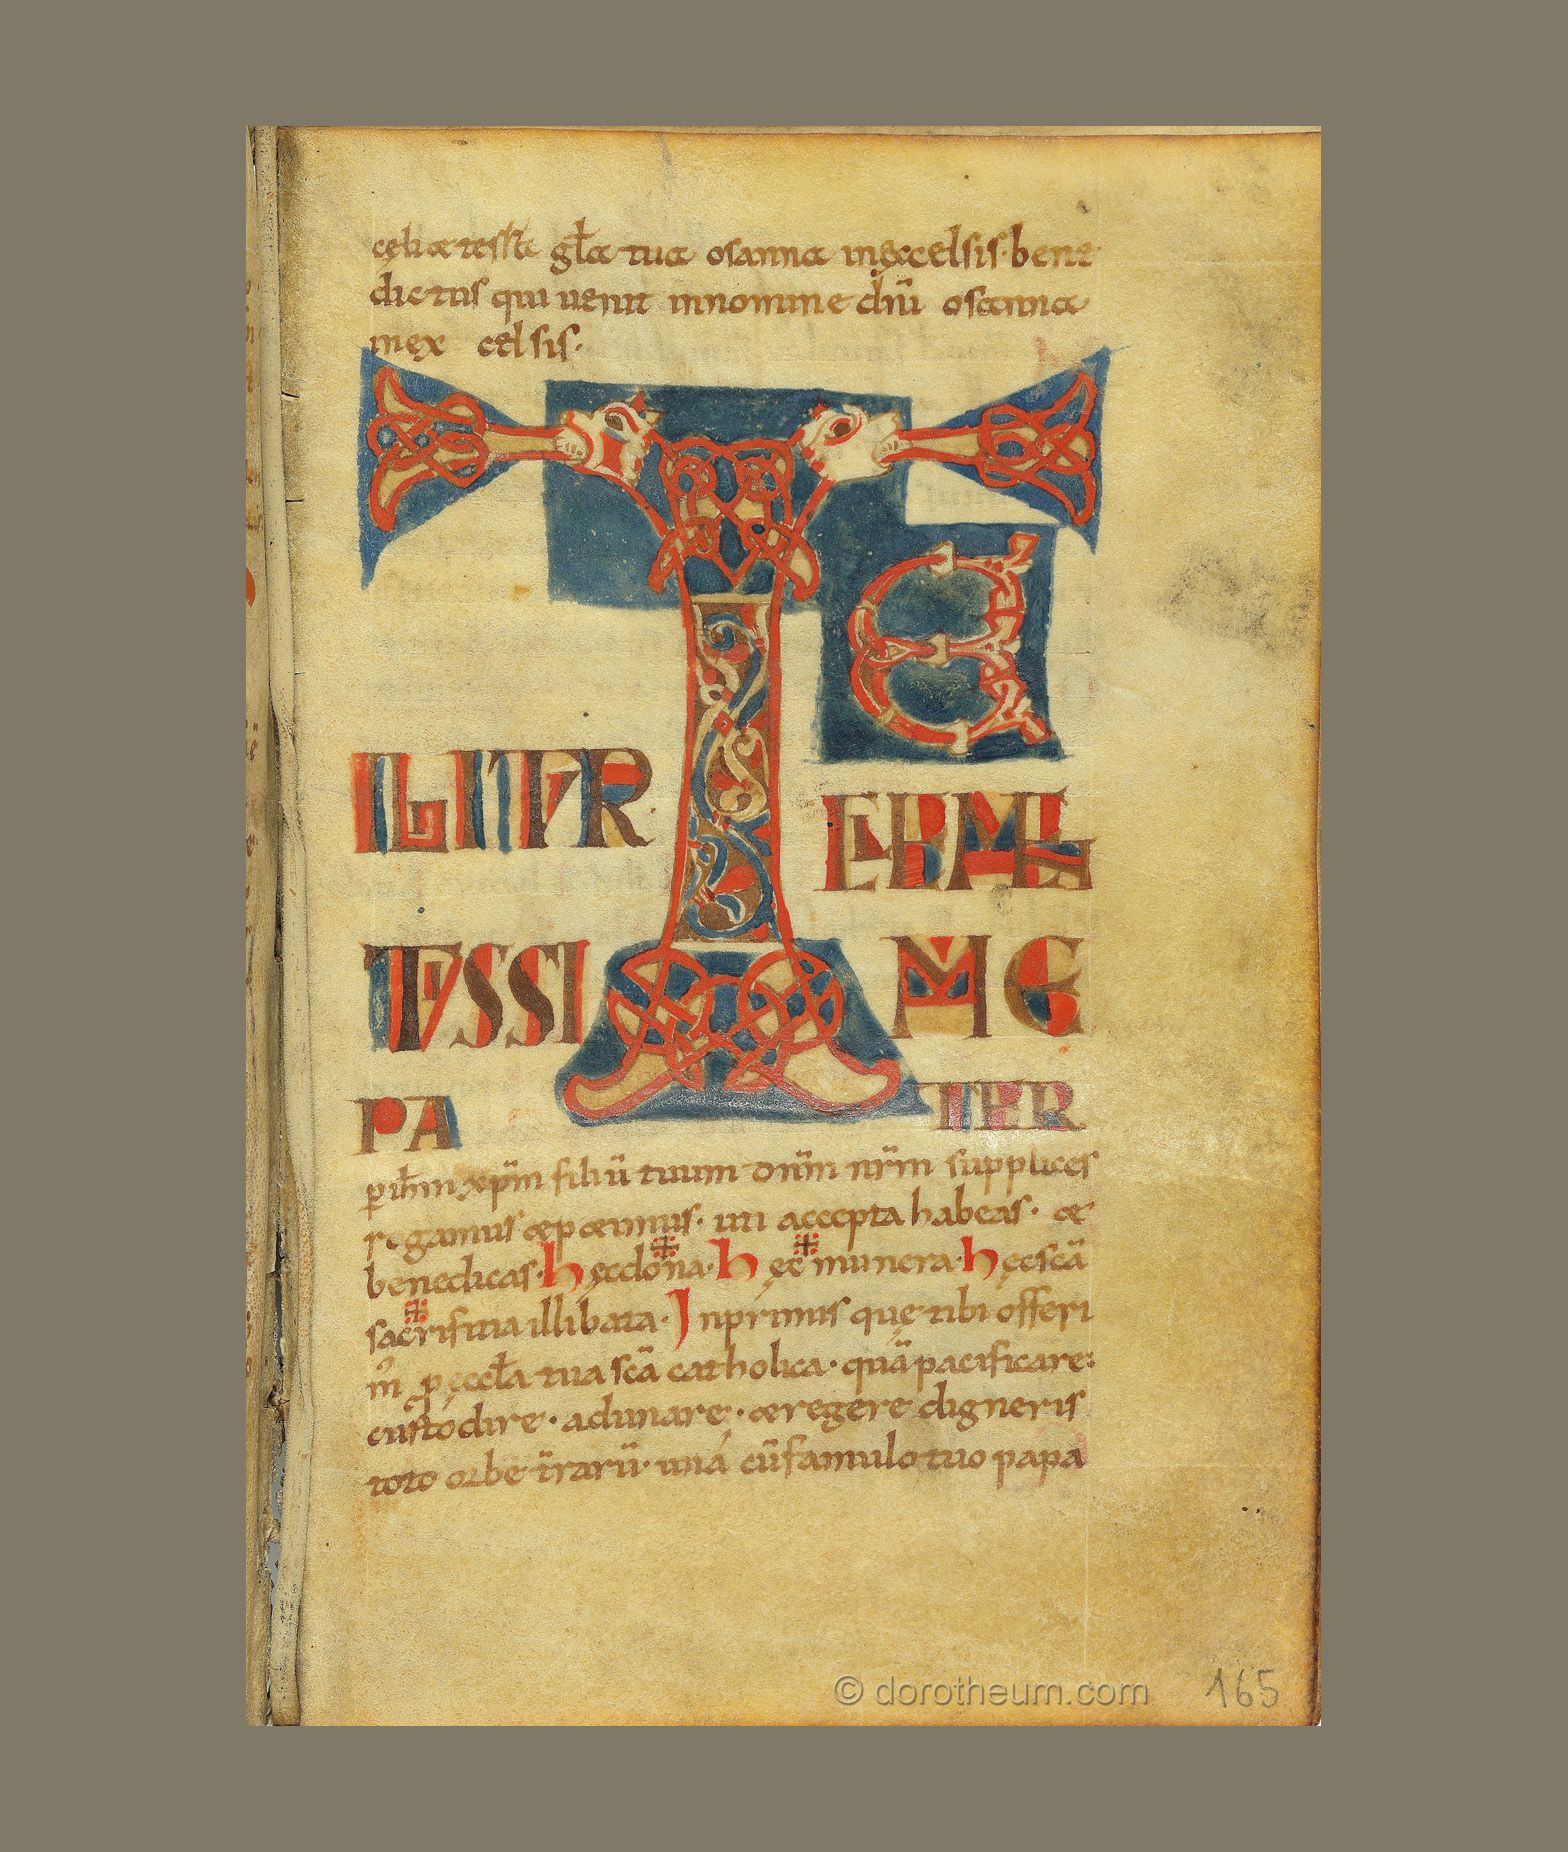 cęli & terra gl̄a tua osanna inęxcelsis · bene
dictus qui uenit innomine dn̄i osanna
inęx celsis ·
TE
IGITVR
CLEMEN
TISSIME
PATER
p ih̄m xp̄m filiū tuum dn̄m nr̄m supplices
rogamus & p&imus · uti accepta habeas · &
benedicas · hęc dona · hęc munera · hęc scā
sacrificia illibata · Inprimis quę tibi offeri
m᷒ p ęccl̄a tua scā catholica · quā pacificare ·
custodire · adunare · & regere digneris
toto orbe tr̄arū · una cū famulo tuo papa
© dorotheum.com
165